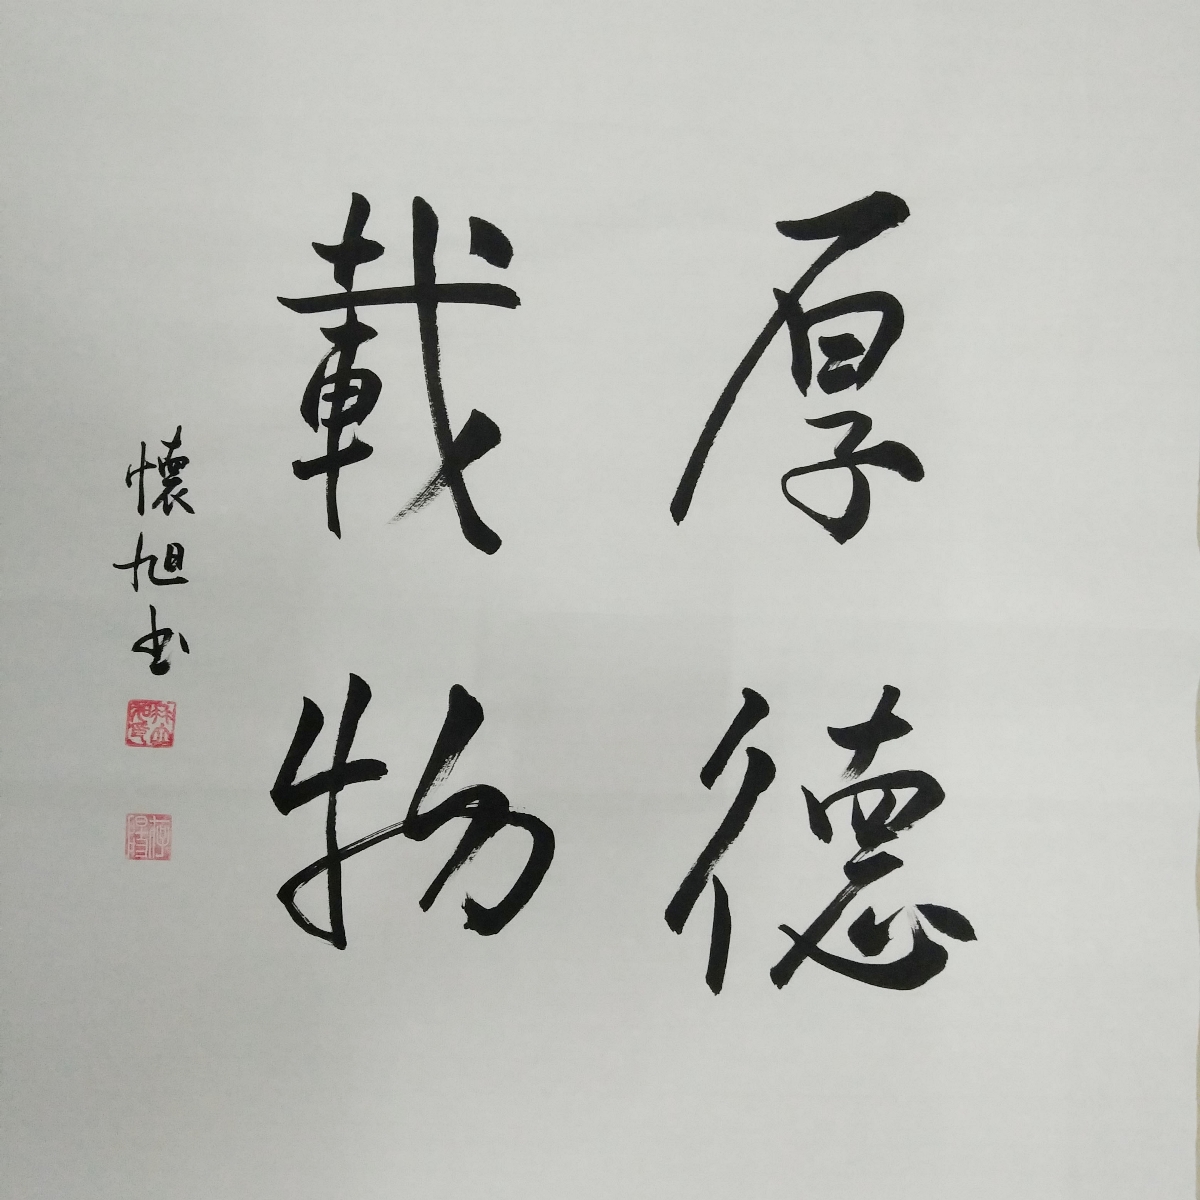 厚德
載物
懷旭书